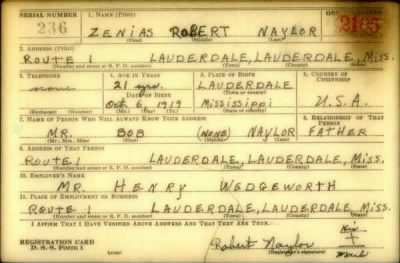 SERIAL NUMBER 1. NAME (Print) ORDER NUMBER
236 ZENIAS ROBERT NAYLOR 2105
(First) (Middle) (Last)
2. ADDRESS (Print)
ROUTE 1 LAUDERDALE, LAUDERDALE, MISS.
(Number and street or R. F. D. number) (Town) (County) (State)
3. TELEPHONE 4. AGE IN YEARS 5. PLACE OF BIRTH 6. COUNTRY OF CITIZENSHIP
none 21 yrs. LAUDERDALE
DATE OF BIRTH (Town or county)
Oct 6, 1919 Mississippi U.S.A.
(Exchange) (Number) (Mo.) (Day) (Yr.) (State or country)
7. NAME OF PERSON WHO WILL ALWAYS KNOW YOUR ADDRESS 8. RELATIONSHIP OF THAT PERSON
MR. BOB (NONE) NAYLOR FATHER
(Mr., Mrs., Miss) (First) (Middle) (Last)
9. ADDRESS OF THAT PERSON
ROUTE 1 LAUDERDALE, LAUDERDALE, MISS.
(Number and street or R. F. D. number) (Town) (County) (State)
10. EMPLOYER'S NAME
MR. HENRY WEDGEWORTH
11. PLACE OF EMPLOYMENT OR BUSINESS
ROUTE 1 LAUDERDALE, LAUDERDALE, MISS.
(Number and street or R. F. D. number) (Town) (County) (State)
I AFFIRM THAT I HAVE VERIFIED ABOVE ANSWERS AND THAT THEY ARE TRUE.
REGISTRATION CARD His
D. S. S. Form 1 Robert Naylor X
Mark